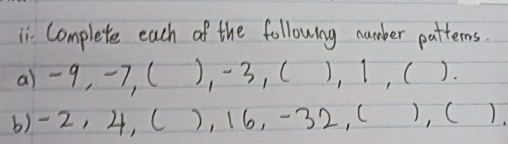 ii. Complete each of the following number patterns.
a) -9, -7, ( ), -3, ( ), 1, ( ).
b) -2, 4, ( ), 16, -32, ( ), ( ).